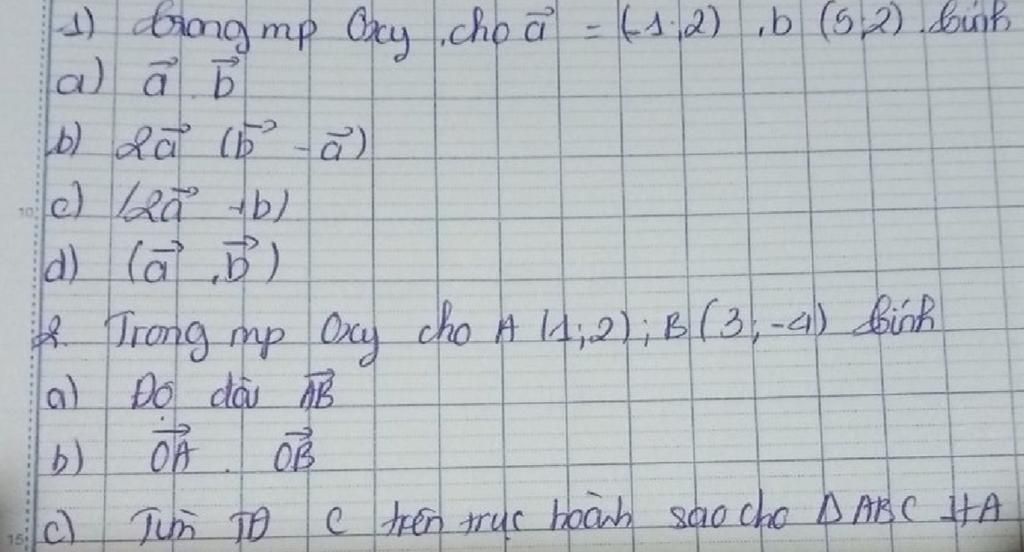 1) trong mp Oxy, cho a⃗ = (-1;2), b (5;2) tính
a) a⃗ . b⃗
b) 2a⃗ (b⃗ - a⃗)
10 c) (2a⃗ + b)
d) (a⃗, b⃗)
2. Trong mp Oxy cho A (1;2); B(3;-4) tính
a) Độ dài A⃗B⃗
b) O⃗A⃗ . O⃗B⃗
15 c) Tìm TĐ C trên trục hoành sao cho Δ ABC ⊥ A